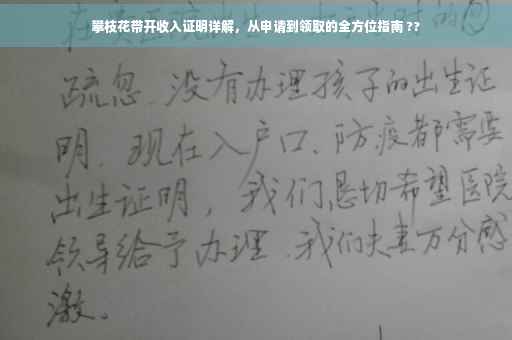 攀枝花带开收入证明详解，从申请到领取的全方位指南??
在
疏忽.没有办理孩子的出生证
明.现在入户口、防疫都需要
出生证明，我们恳切希望医院
领导给予办理.我们夫妻万分感
激。